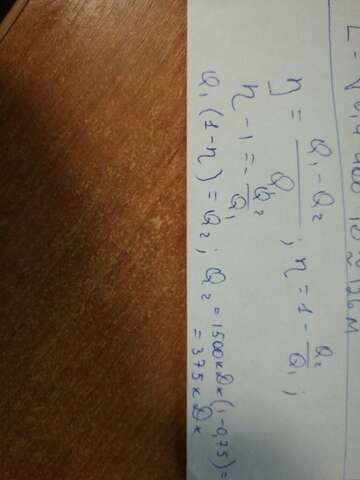 η = (Q₁ - Q₂)/Q₁ ; η = 1 - Q₂/Q₁ ;
η - 1 = - Q₂/Q₁
Q₁ (1-η) = Q₂ ; Q₂ = 1500кДж (1-0,75) =
= 375 кДж